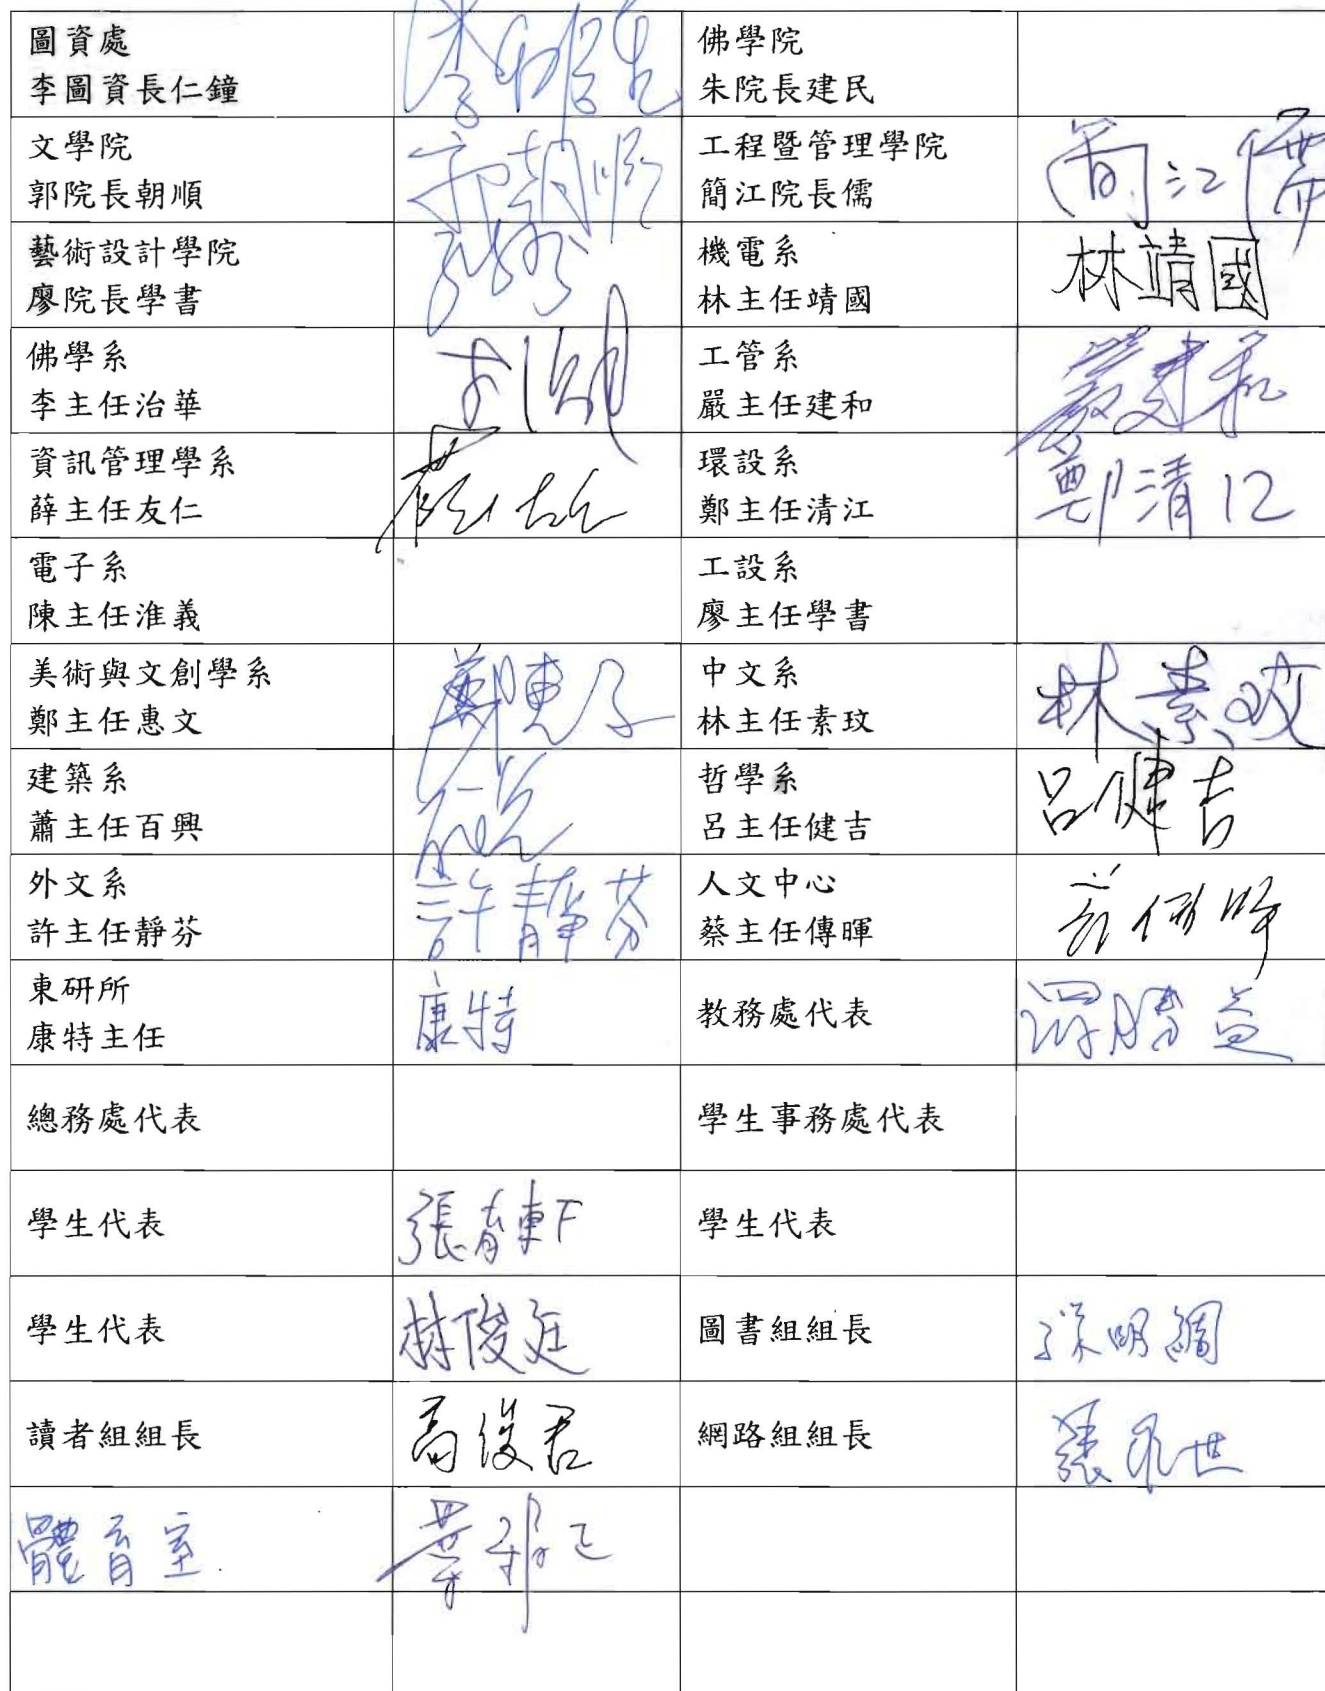 圖資處
李圖資長仁鐘
佛學院
朱院長建民
文學院
郭院長朝順
郭朝順
工程暨管理學院
簡江院長儒
簡江儒
藝術設計學院
廖院長學書
機電系
林主任靖國
林靖國
佛學系
李主任治華
工管系
嚴主任建和
嚴建和
資訊管理學系
薛主任友仁
環設系
鄭主任清江
鄭清江
電子系
陳主任淮義
工設系
廖主任學書
美術與文創學系
鄭主任惠文
中文系
林主任素玟
林素玟
建築系
蕭主任百興
哲學系
呂主任健吉
呂健吉
外文系
許主任靜芬
許靜芬
人文中心
蔡主任傳暉
東研所
康特主任
康特
教務處代表
總務處代表
學生事務處代表
學生代表
學生代表
學生代表
林俊廷
圖書組組長
讀者組組長
高俊君
網路組組長
體育室